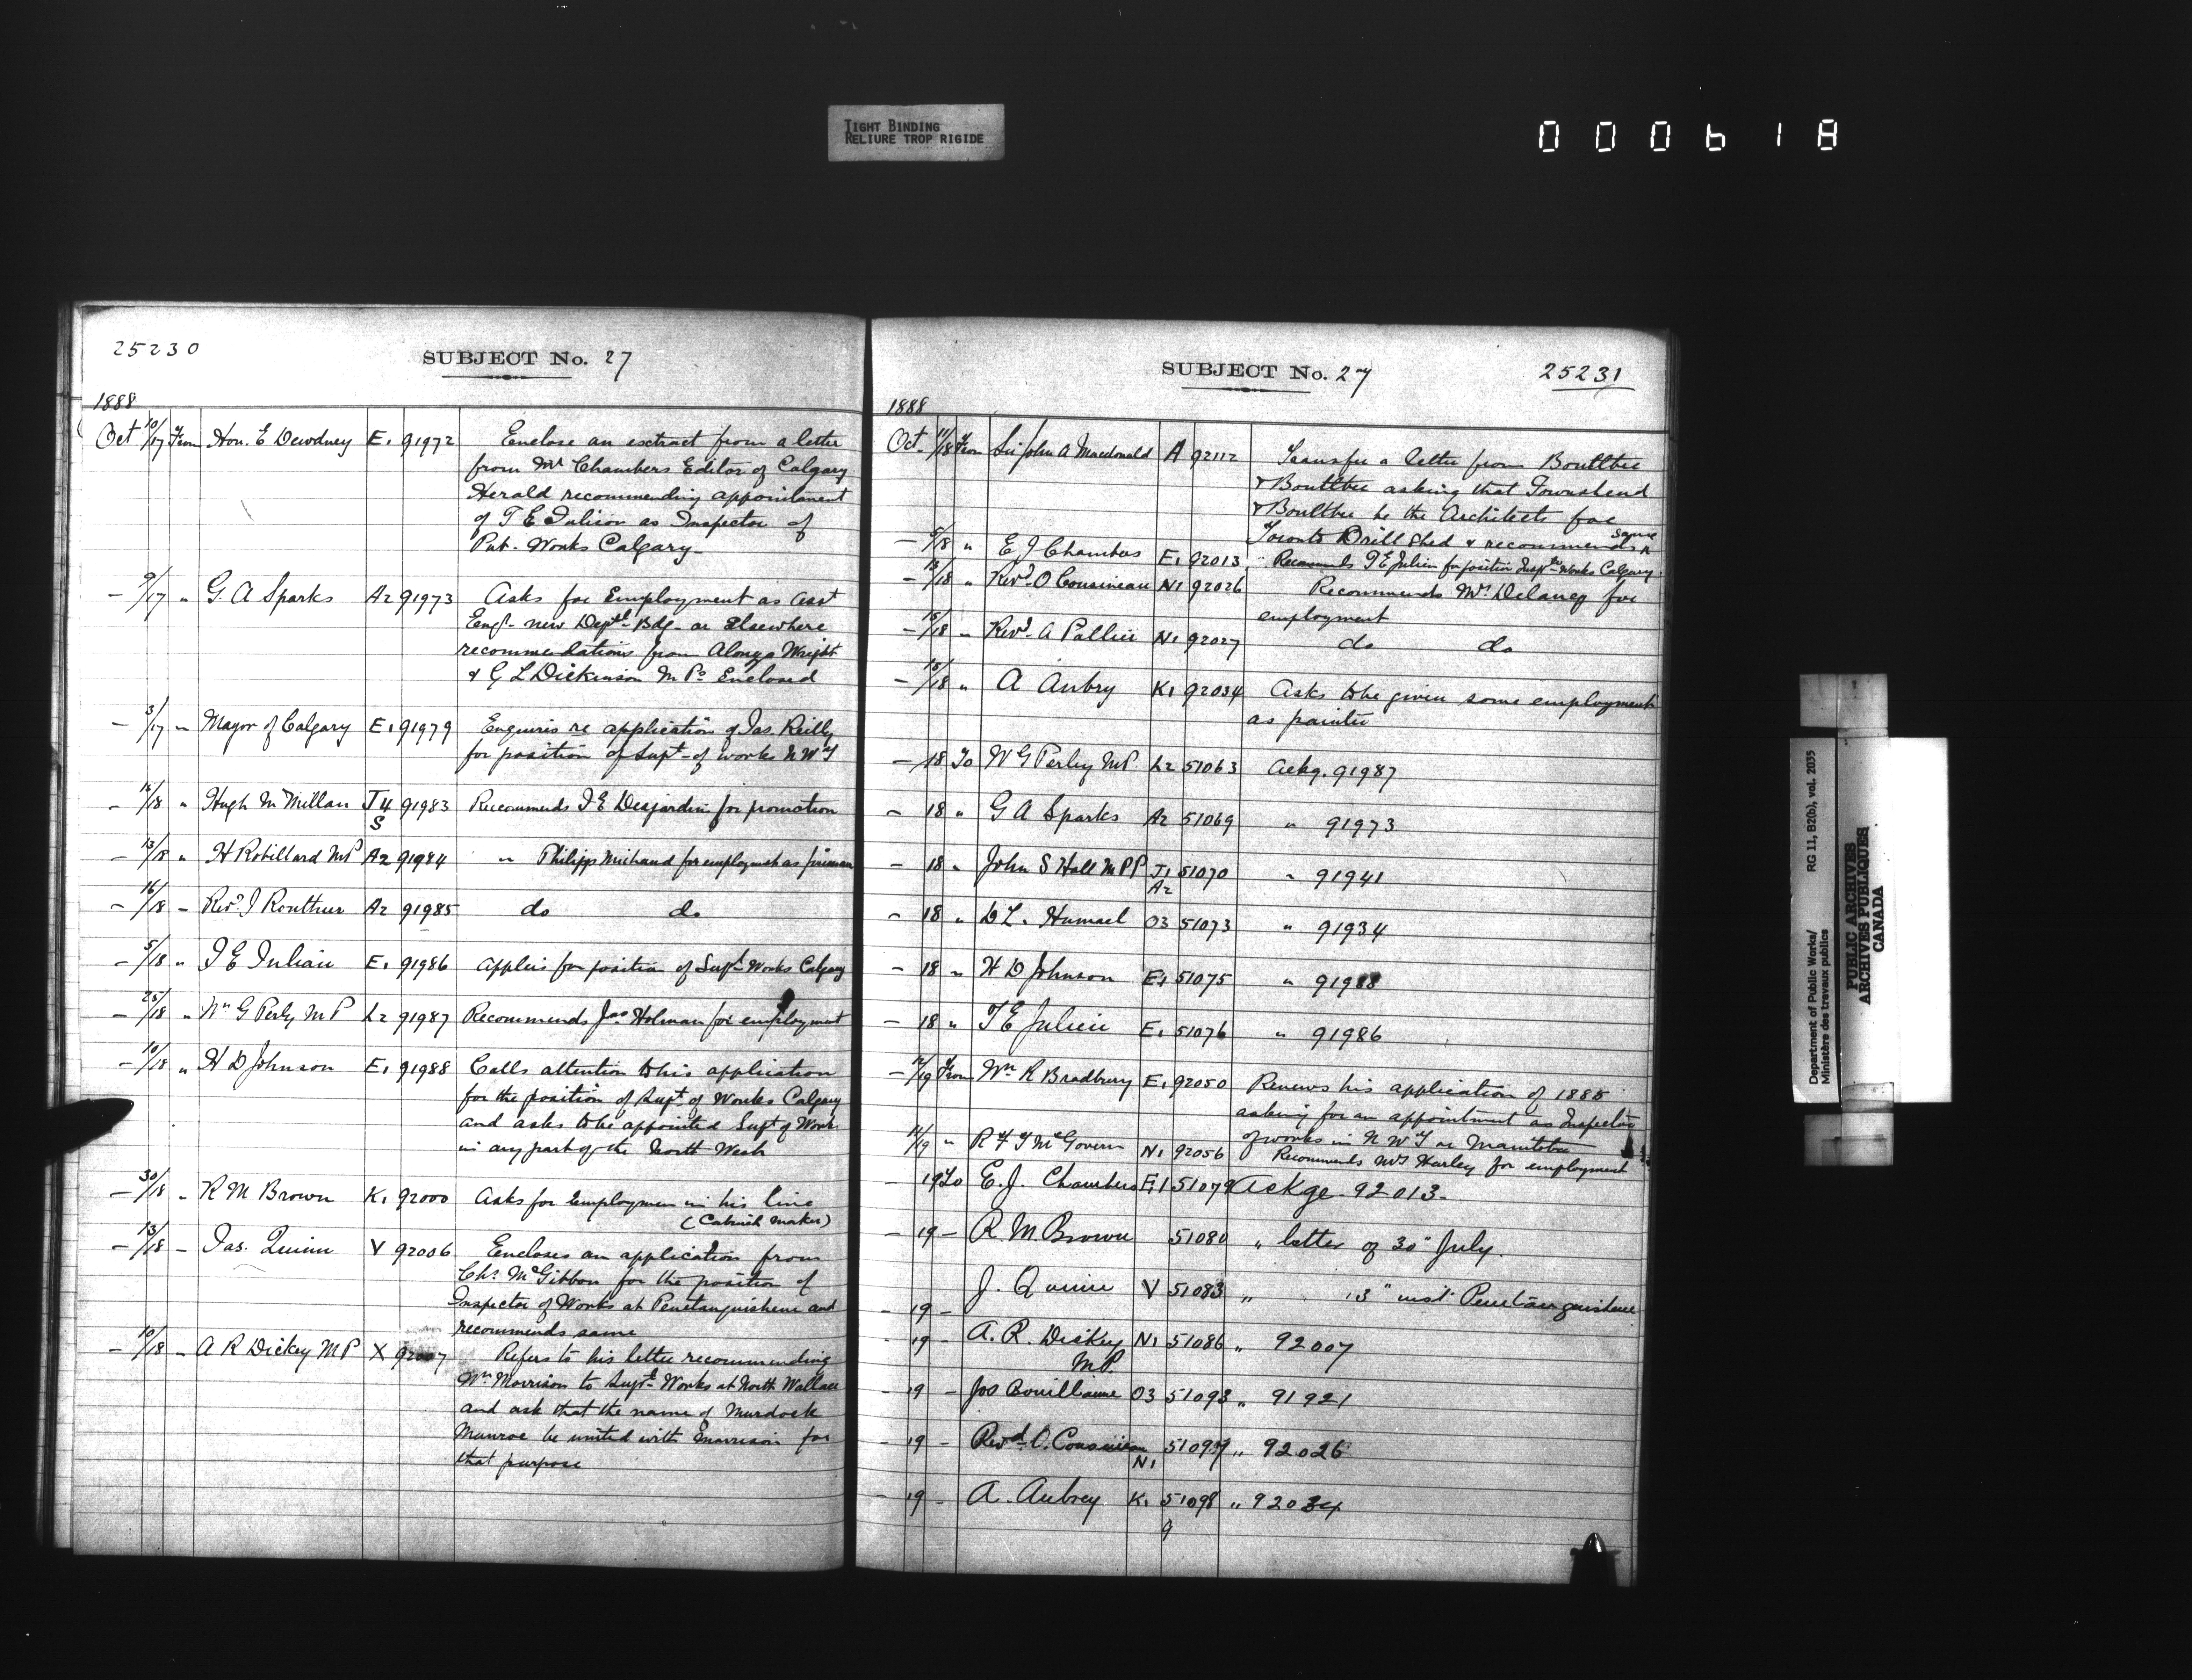 TIGHT BINDING
RELIURE TROP RIGIDE
000618
25230
SUBJECT No. 27
1888
Oct 10/17 From Hon. E Dewdney E1 91972 Enclose an extract from a letter
from Mr Chambers Editor of Calgary
Herald recommending appointment
of T E Julien as Inspector of
Pub. Works Calgary
— 9/17 " G. A Sparks A2 91973 Asks for Employment as asst
Engr. new Deptl Bdg. or Elsewhere
recommendations from Alonzo Wright
& G L Dickinson M Ps Enclosed
— 3/17 " Mayor of Calgary E1 91979 Enquires re application of Jas. Reilly
for position of Supt of works N W T
— 16/18 " Hugh McMillan J4 91983 Recommends J E Desjardin for promotion
S
— 13/18 " H Robillard MP A2 91984 " Philipps Michaud for employment as fireman
— 16/18 - Revd J Routhier A2 91985 do do
— 5/18 " T E Julian E1 91986 Applies for position of Supt Works Calgary
— 25/18 " Wm G Perly M P L2 91987 Recommends Jas Holman for employment
— 10/18 " H D Johnson E1 91988 Calls attention to his application
for the position of Supt. of Works Calgary
and asks to be appointed Supt of Works
in any part of the North West
— 30/18 " R M Brown K1 92000 Asks for Employmen in his line
(Cabinet Maker)
— 13/18 - Jas. Quinn V 92006 Encloses an application from
Chs. McGibbon for the position of
Inspector of Works at Penetanguishene and
recommends same
— 10/18 - A R Dickey M P X 92007 Refers to his letter recommending
Wm Morrison to Supt Works at North Wallace
and ask that the name of Murdock
Munroe be united with Morrison for
that purpose
SUBJECT No. 27
25231
1888
Oct. 11/18 From Sir John A Macdonald A 92112 Transfer a letter from Boultbee
& Boultbee asking that Townshend
& Boultbee be the Architects for
Toronto Drill Shed & recommends same
— 5/18 " E J Chambers E1 92013 " Recommends T E Julien for position Supt Works Calgary
— 15/18 " Revd. O Cousineau N1 92026 Recommends Mr Delaney for
employment
— 15/18 - Revd. A Pallier N1 92027 do do
— 15/18 " A Aubry K1 92034 Asks to be given some employment
as painter
— 18 To W G Perley MP. L2 51063 Ackg. 91987
— 18 " G A Sparks A2 51069 " 91973
— 18 " John S Hall M P P J1 51070 " 91941
A2
— 18 " D L. Hamael O3 51073 " 91934
— 18 " H D Johnson E1 51075 " 91988
— 18 " T E Julien E1 51076 " 91986
— 12/19 From Wm R Bradbury E1 92050 Renews his application of 1885
asking for an appointment as Inspector
of works in N W T or Manitoba
11/19 " R F J McGovern N1 92056 Recommends Mr Harley for employment
19 To E. J. Chambers E1 51079 Ackge. 92013.
— 19 — R M Brown 51080 " letter of 30" July.
— 19 — J. Quinn V 51083 " 13" inst. Penetanguishene
— 19 — A. R. Dickey N1 51086 " 92007
M.P.
— 19 — Jos Bouillanne O3 51093 " 91921
— 19 — Revd. O. Cousineau 51097 " 92026
N1
— 19 — A. Aubrey K1 51098 " 92034
9
Department of Public Works/
Ministère des travaux publics
RG 11, B2(b), vol. 2035
PUBLIC ARCHIVES
ARCHIVES PUBLIQUES
CANADA